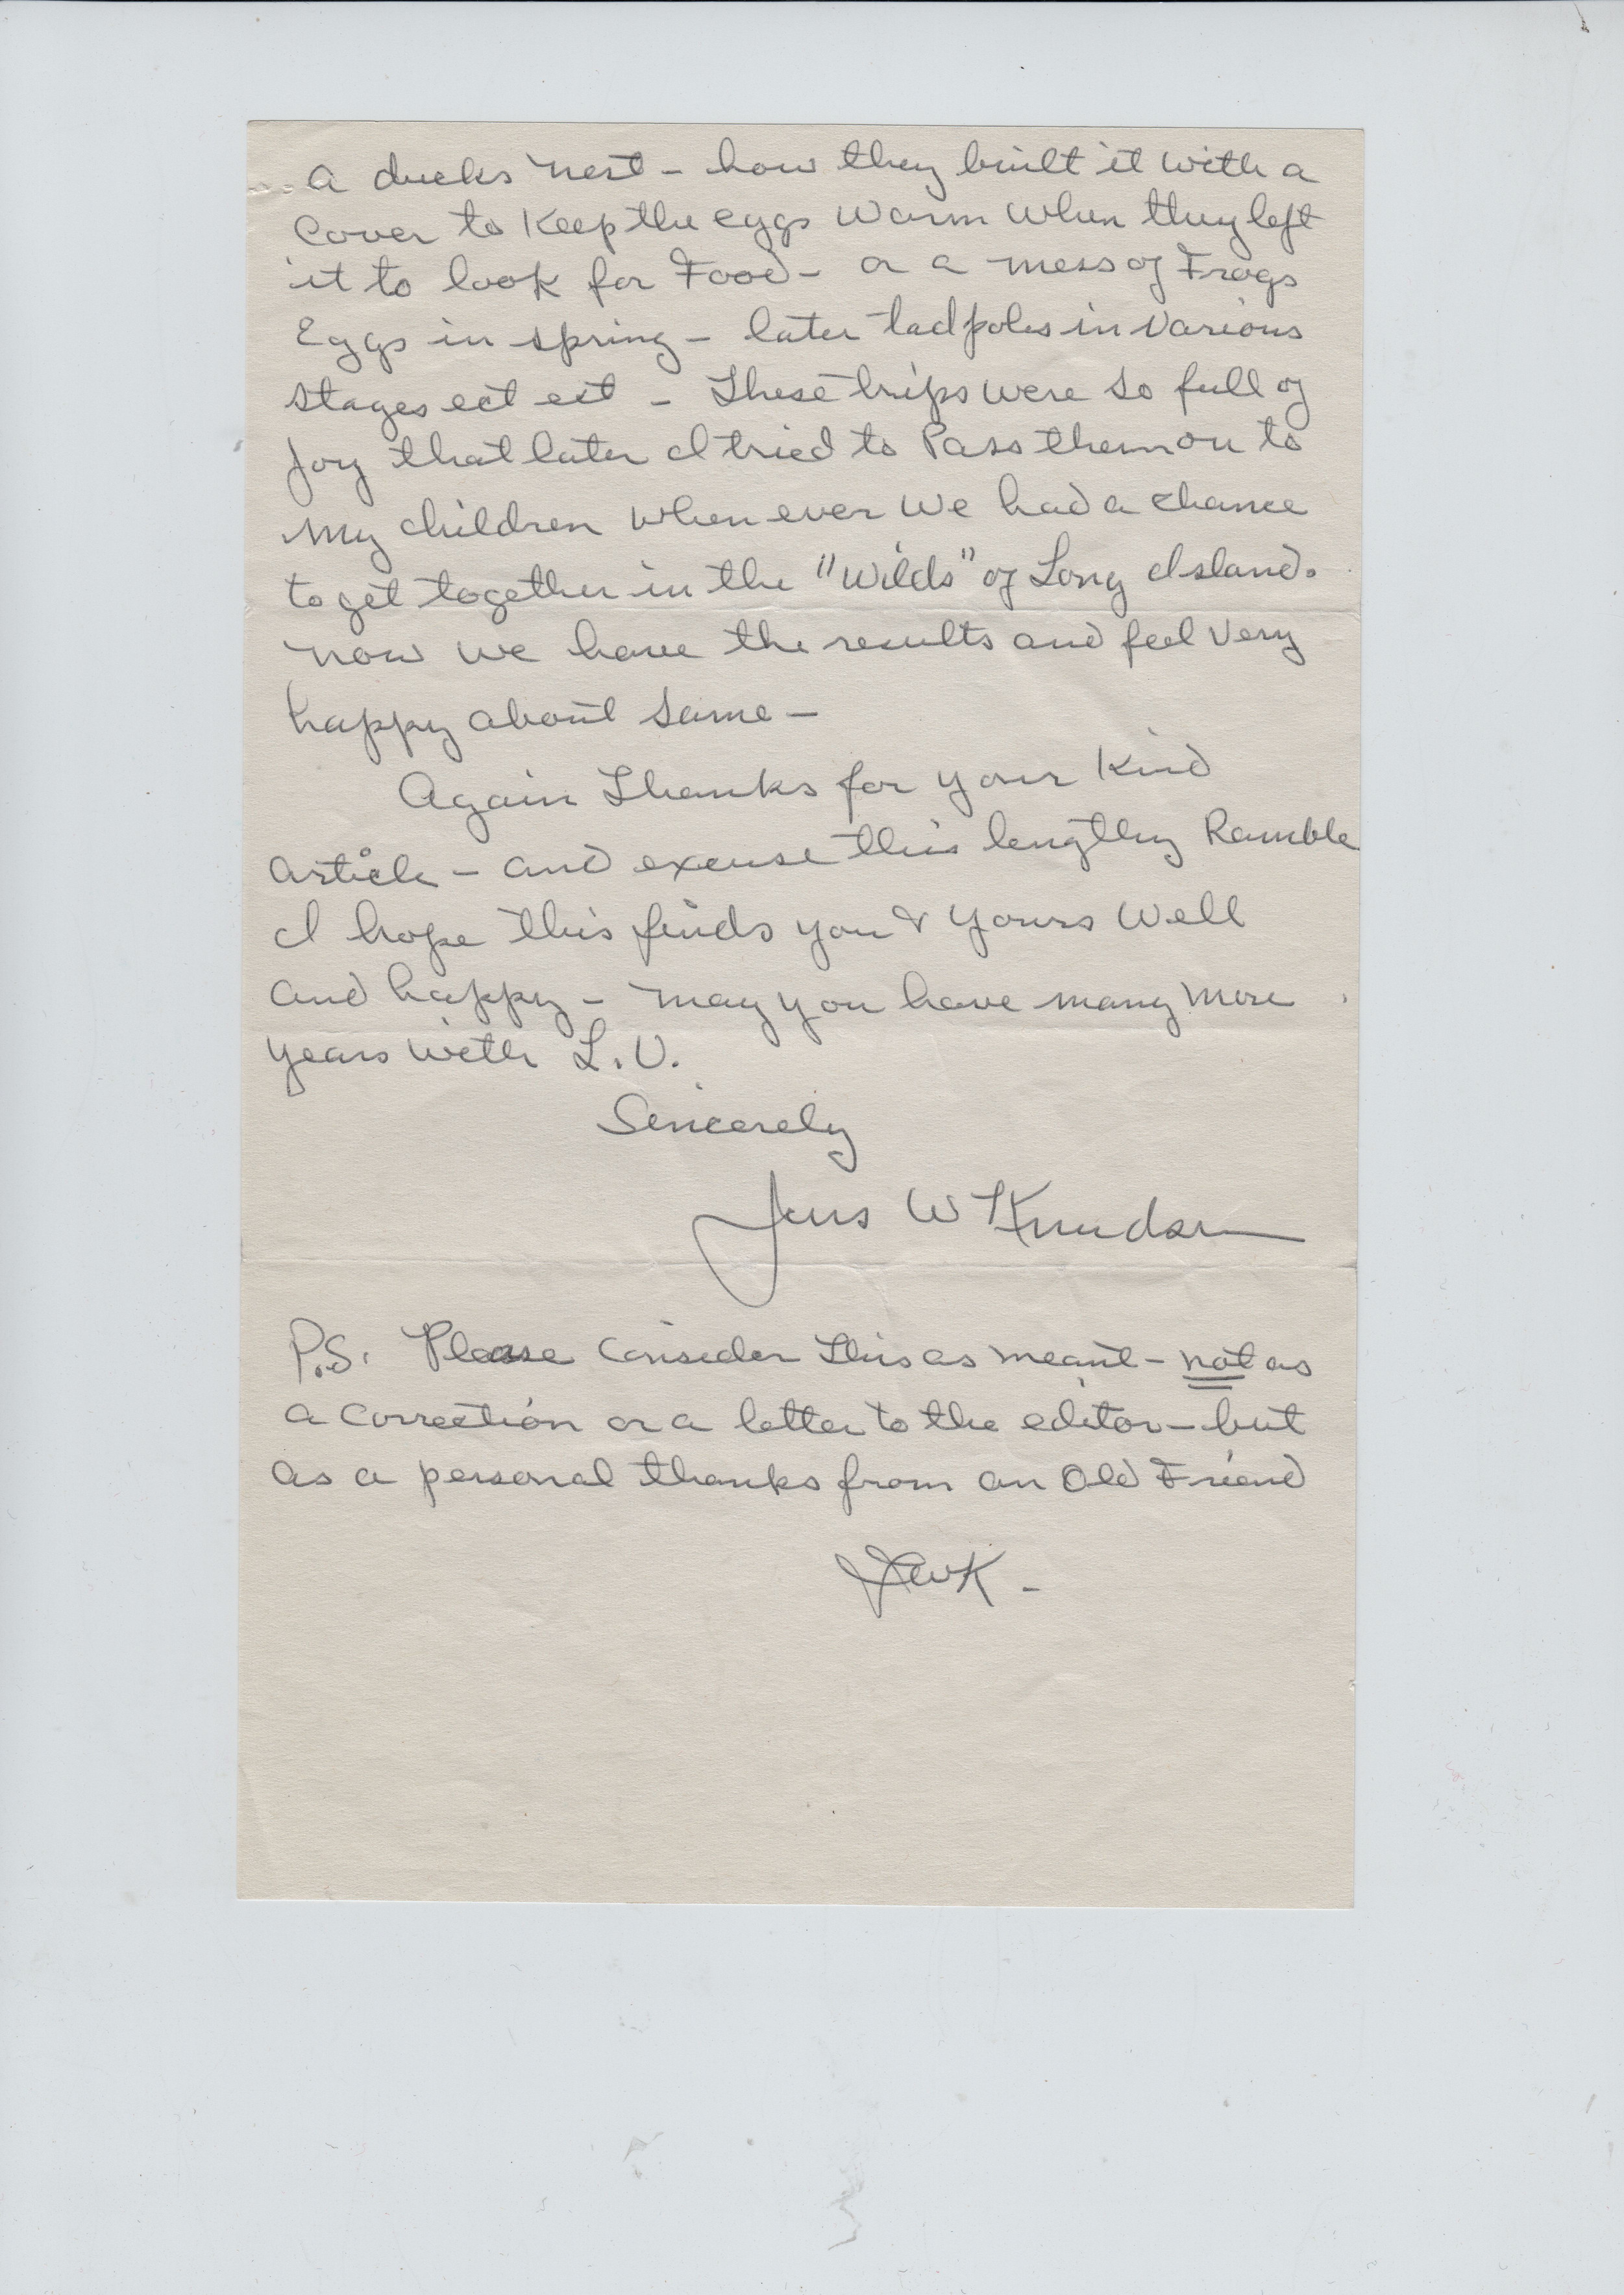 a ducks nest - how they built it with a
Cover to Keep the eggs warm when they left
it to look for Food - or a mess of Frogs
Eggs in spring - later tadpoles in various
stages ect ect - These trips were so full of
joy that later I tried to Pass them on to
my children when ever we had a chance
to get together in the "Wilds" of Long Island.
Now we have the results and feel very
happy about same -
Again Thanks for your Kind
article - and excuse this lengthy Ramble
I hope this finds you & yours well
and happy - may you have many more
years with L.V.
Sincerely
Jens W Knudsen
P.S. Please Consider This as meant - not as
a correction or a letter to the editor - but
as a personal thanks from an Old Friend
JWK -